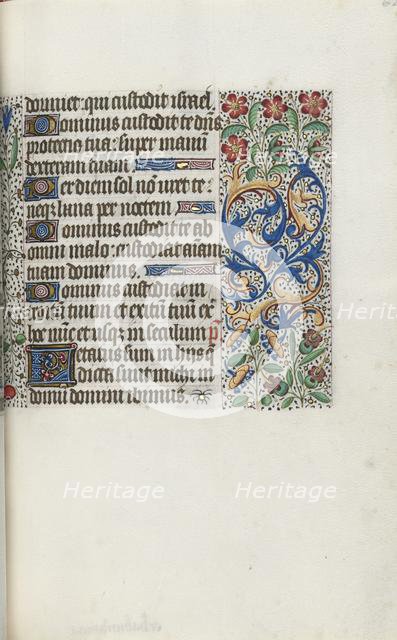 dormiet: qui custodit israel
Dominus custodit te dn̄s
protectio tua: super manum
dexteram tuam
Per diem sol nō uret te:
neqȝ luna per noctem
Dominus custodit te ab
omni malo: custodiat aīam
tuam dominus.
Dominus custodiat in
tuum et exitum tuū ex
hoc nūc et usqȝ in seculum p̄
Letatus sum in hiis q
dicta sunt michi in
domū domini ibimus.
Heritage
Heritage
Heritage
Heritage